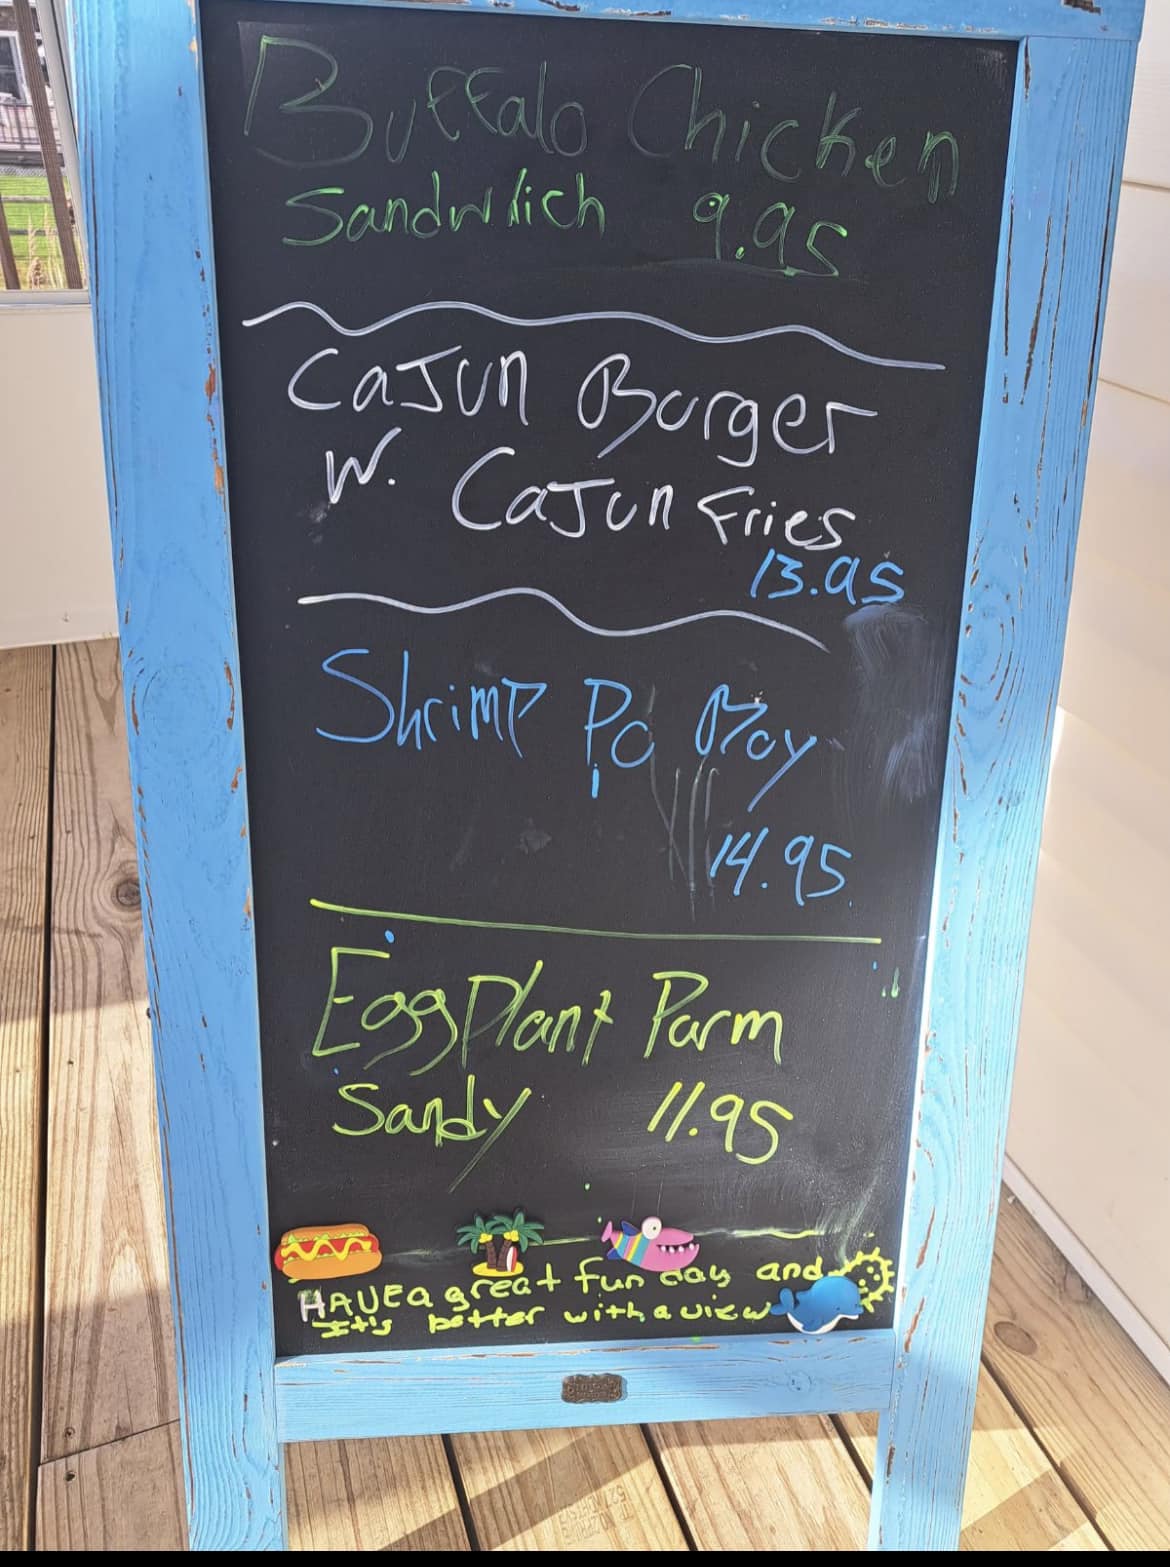 Buffalo Chicken
Sandwich 9.95
Cajun Burger
W. Cajun Fries
13.95
Shrimp Po Boy
14.95
EggPlant Parm
Sandy 11.95
HAVE a great fun day and
It's better with a view